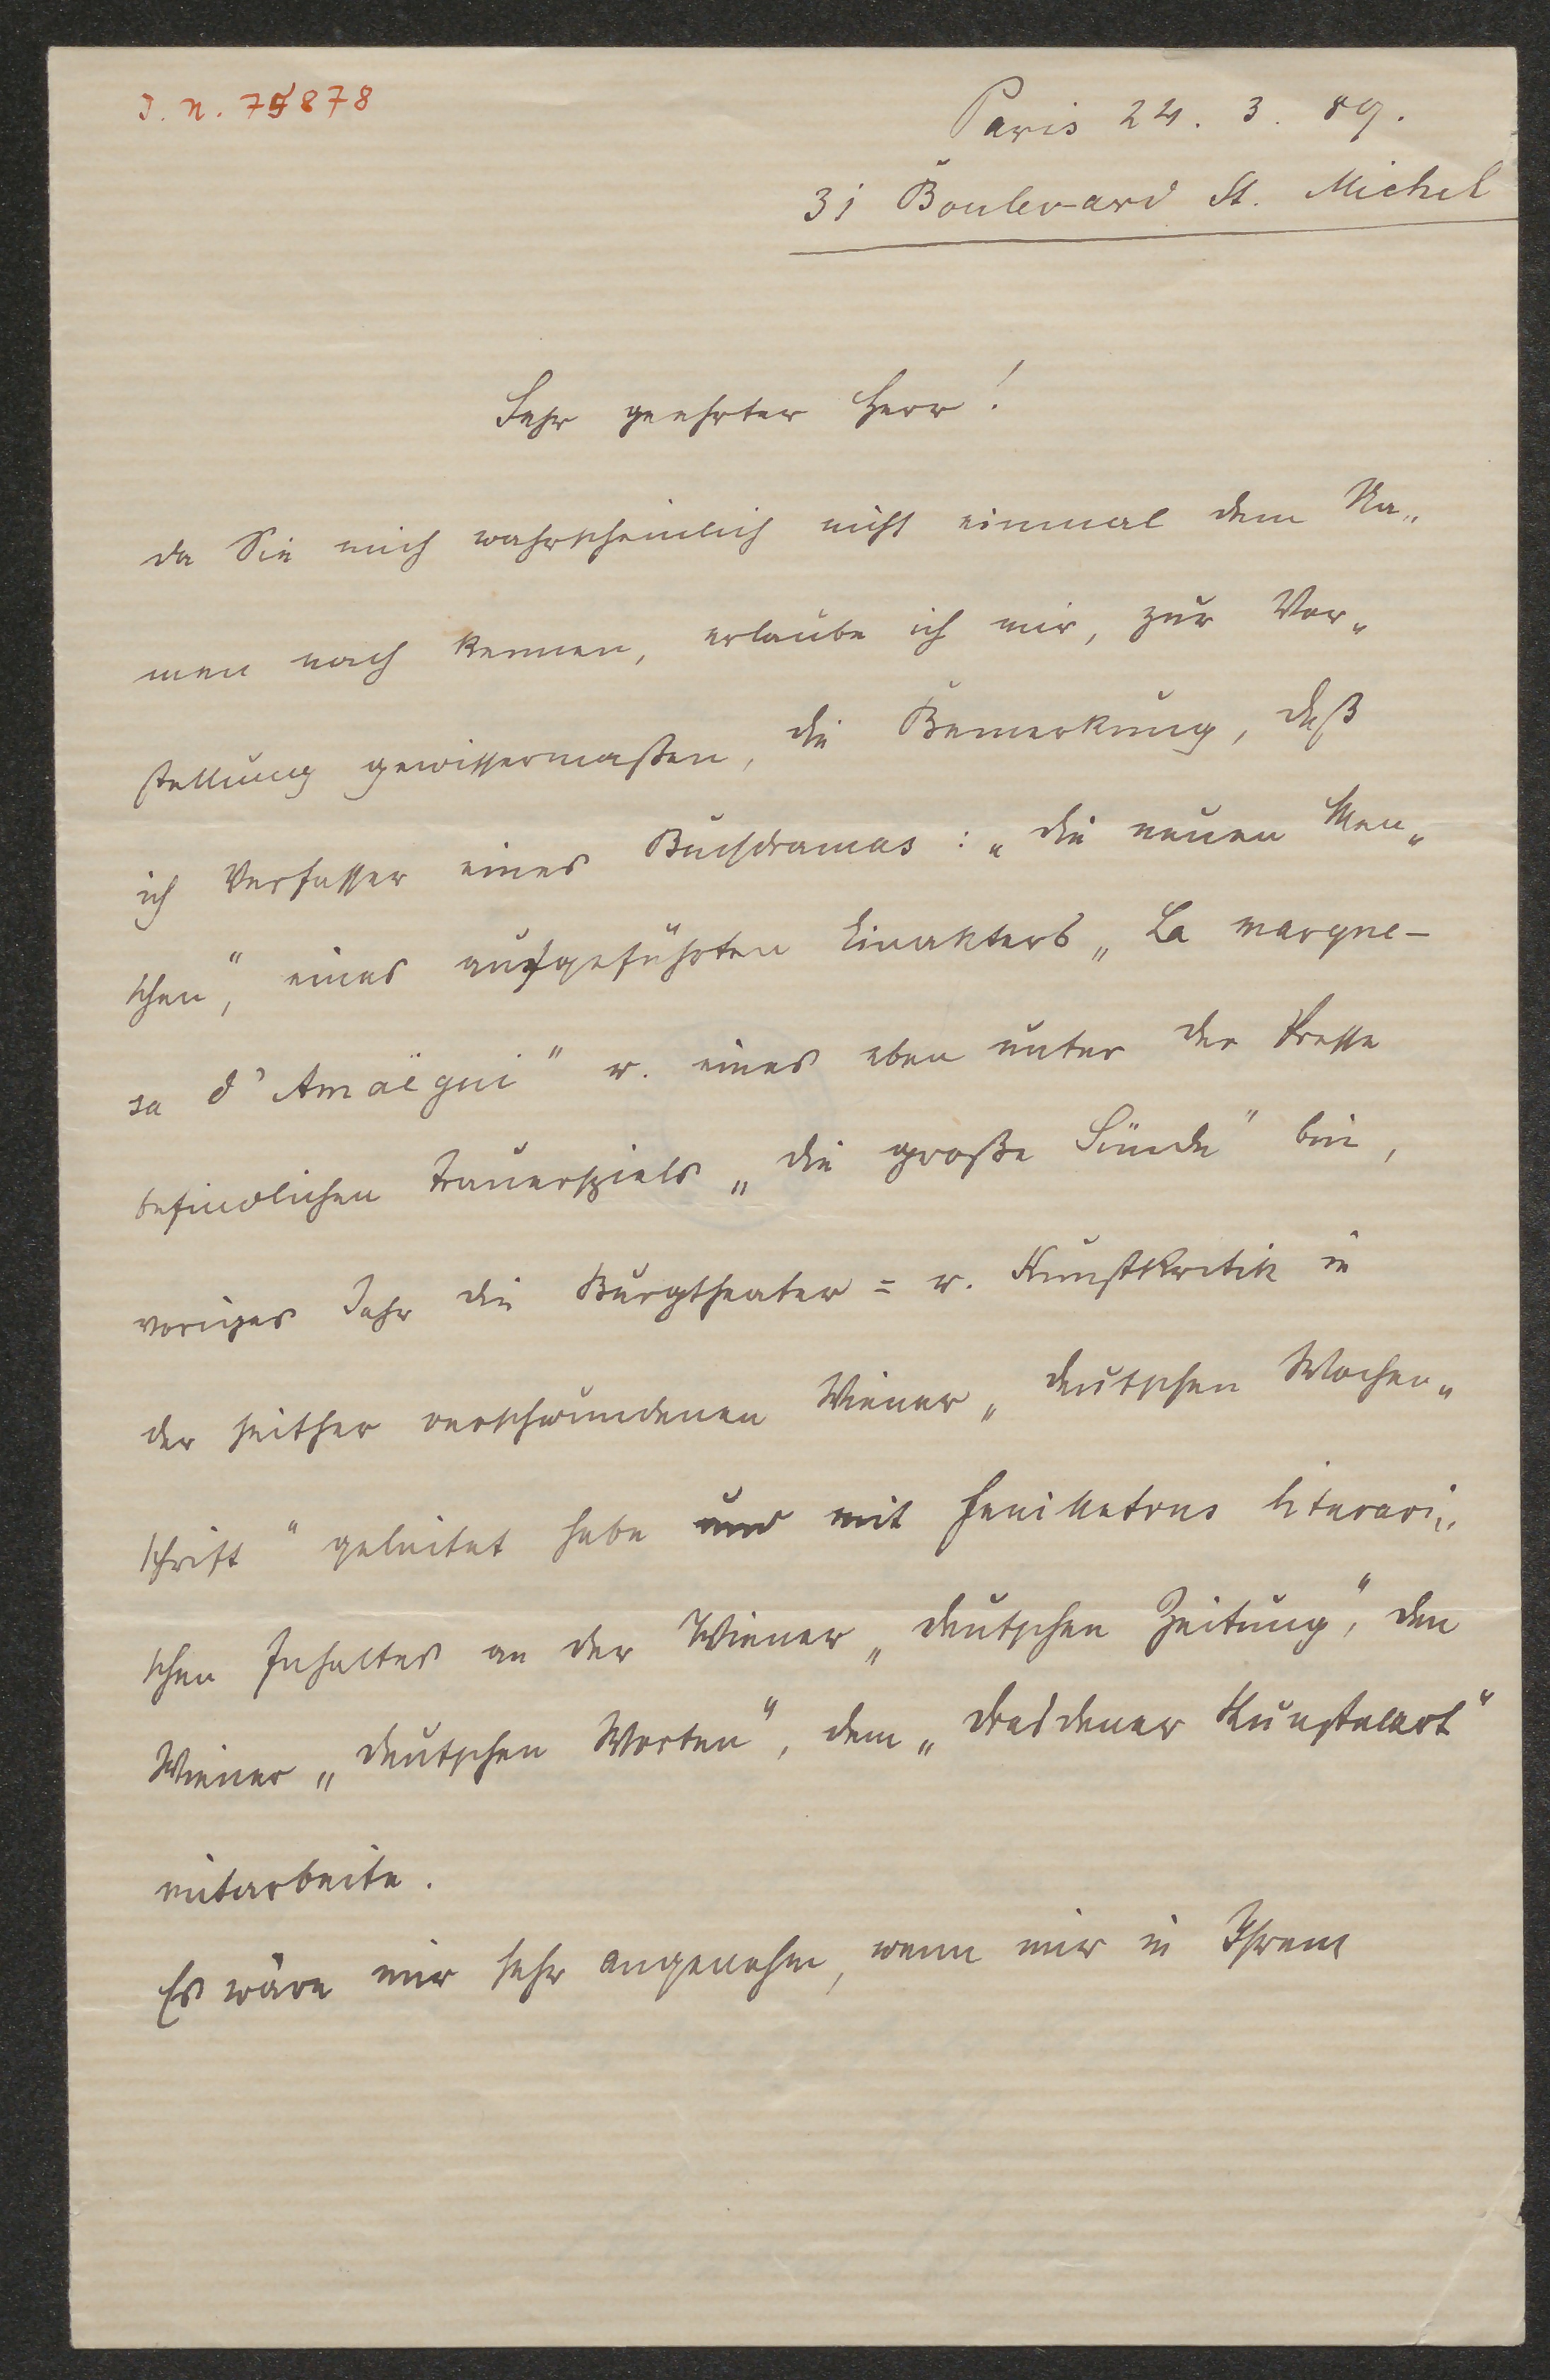 J. N. 75878
Paris 24. 3. 89.
31 Boulevard St. Michel
Sehr geehrter Herr!
da Sie mich wahrscheinlich nicht einmal dem Na„
men nach kennen, erlaube ich mir, zur Vor„
stellung gewissermaßen, die Bemerkung, daß
ich Verfasser eines Buchdramas: „die neuen Men„
schen“, eines aufgeführten Einakters „La marque-
sa d'Amaëgui“ u. eines eben unter der Presse
befindlichen Trauerspiels „die große Sünde“ bin,
voriges Jahr die Burgtheater= u. Kunstkritik in
der seither verschwundenen Wiener „deutschen Wochen„
schrift“ geleitet habe und mit Feuilletons literari„
schen Inhaltes an der Wiener „deutschen Zeitung“, den
Wiener „deutschen Worten“, dem „Dresdener Kunstwart“
mitarbeite.
Es wäre mir sehr angenehm, wenn mir in Ihrem